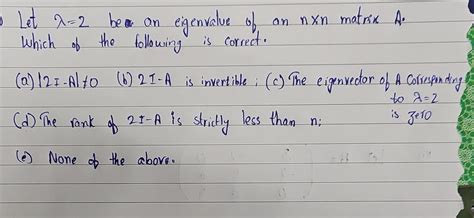 Let λ=2 be an eigenvalue of an n×n matrix A.
Which of the following is correct.
(a) |2I-A|≠0 (b) 2I-A is invertible; (c) The eigenvector of A corresponding
to λ=2
(d) The rank of 2I-A is strictly less than n; is zero
(e) None of the above.